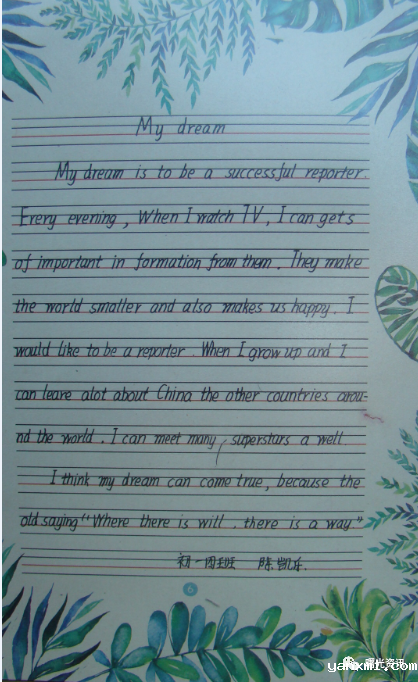 My dream
My dream is to be a successful reporter.
Every evening, When I watch TV, I can gets
of important in formation from them. They make
the world smaller and also makes us happy. I
would like to be a reporter. When I grow up and I
can leare alot about China the other countries arou-
nd the world. I can meet many superstars a well
I think my dream can come true, because the
old saying "Where there is will, there is a way."
初一 陈凯乐
6
yanxmi.com